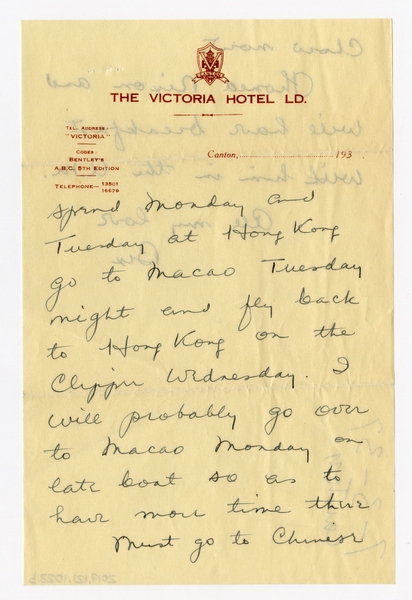 THE VICTORIA HOTEL LD.
TEL. ADDRESS:
"VICTORIA"
CODES:
BENTLEY'S
A.B.C. 5TH EDITION
TELEPHONE— 13501
16679
Canton, 193
spend Monday and
Tuesday at Hong Kong
go to Macao Tuesday
night and fly back
to Hong Kong on the
Clipper Wednesday. I
will probably go over
to Macao Monday on
late boat so as to
have more time there
Must go to Chinese
2019.121.1023b